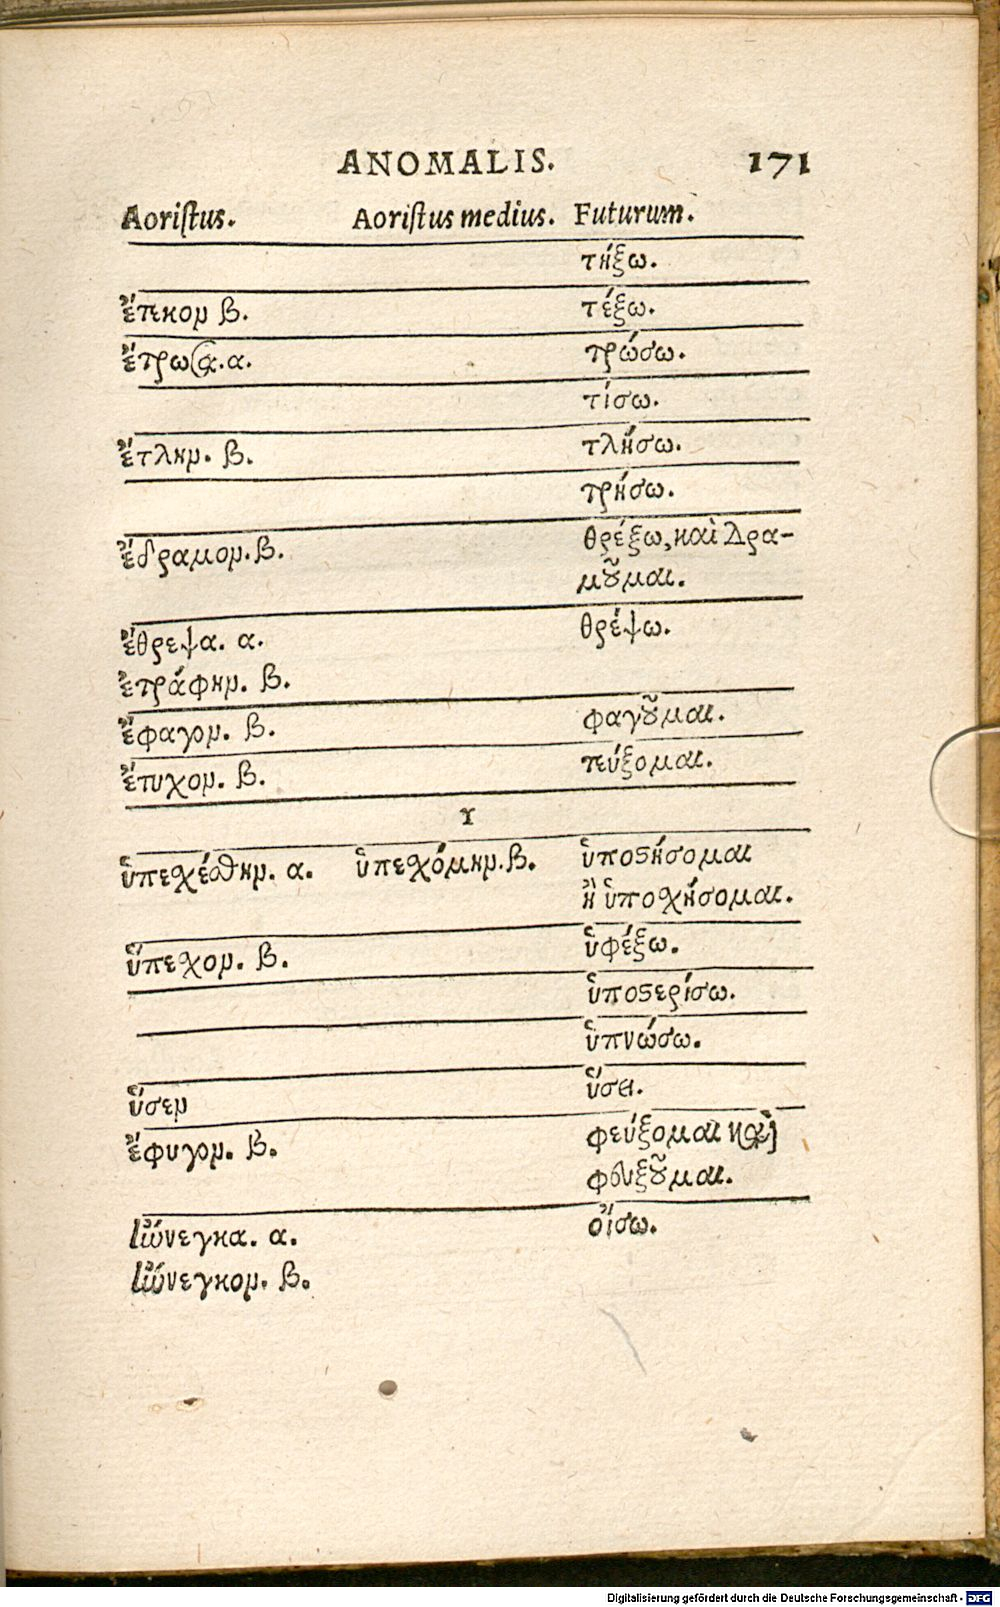 ANOMALIS. 171
Aoristus. Aoristus medius. Futurum.
τήξω.
ἔτεκον β. τέξω.
ἔτρωσα. α. τρώσω.
τίσω.
ἔτλην. β. τλήσω.
τρήσω.
ἔδραμον. β. θρέξω, καὶ δρα-
μοῦμαι.
ἔθρεψα. α. θρέψω.
ἐτράφην. β.
ἔφαγον. β. φαγοῦμαι.
ἔτυχον. β. τεύξομαι.
Υ
ὑπεχέθην. α. ὑπεχόμην. β. ὑποστήσομαι
ἢ ὑποχήσομαι.
ὕπεχον. β. ὑφέξω.
ὑποστερίσω.
ὑπνώσω.
ὗσεν ὕσει.
ἔφυγον. β. φεύξομαι καὶ
φευξοῦμαι.
οἴσω.
Digitalisierung gefördert durch die Deutsche Forschungsgemeinschaft - DFG